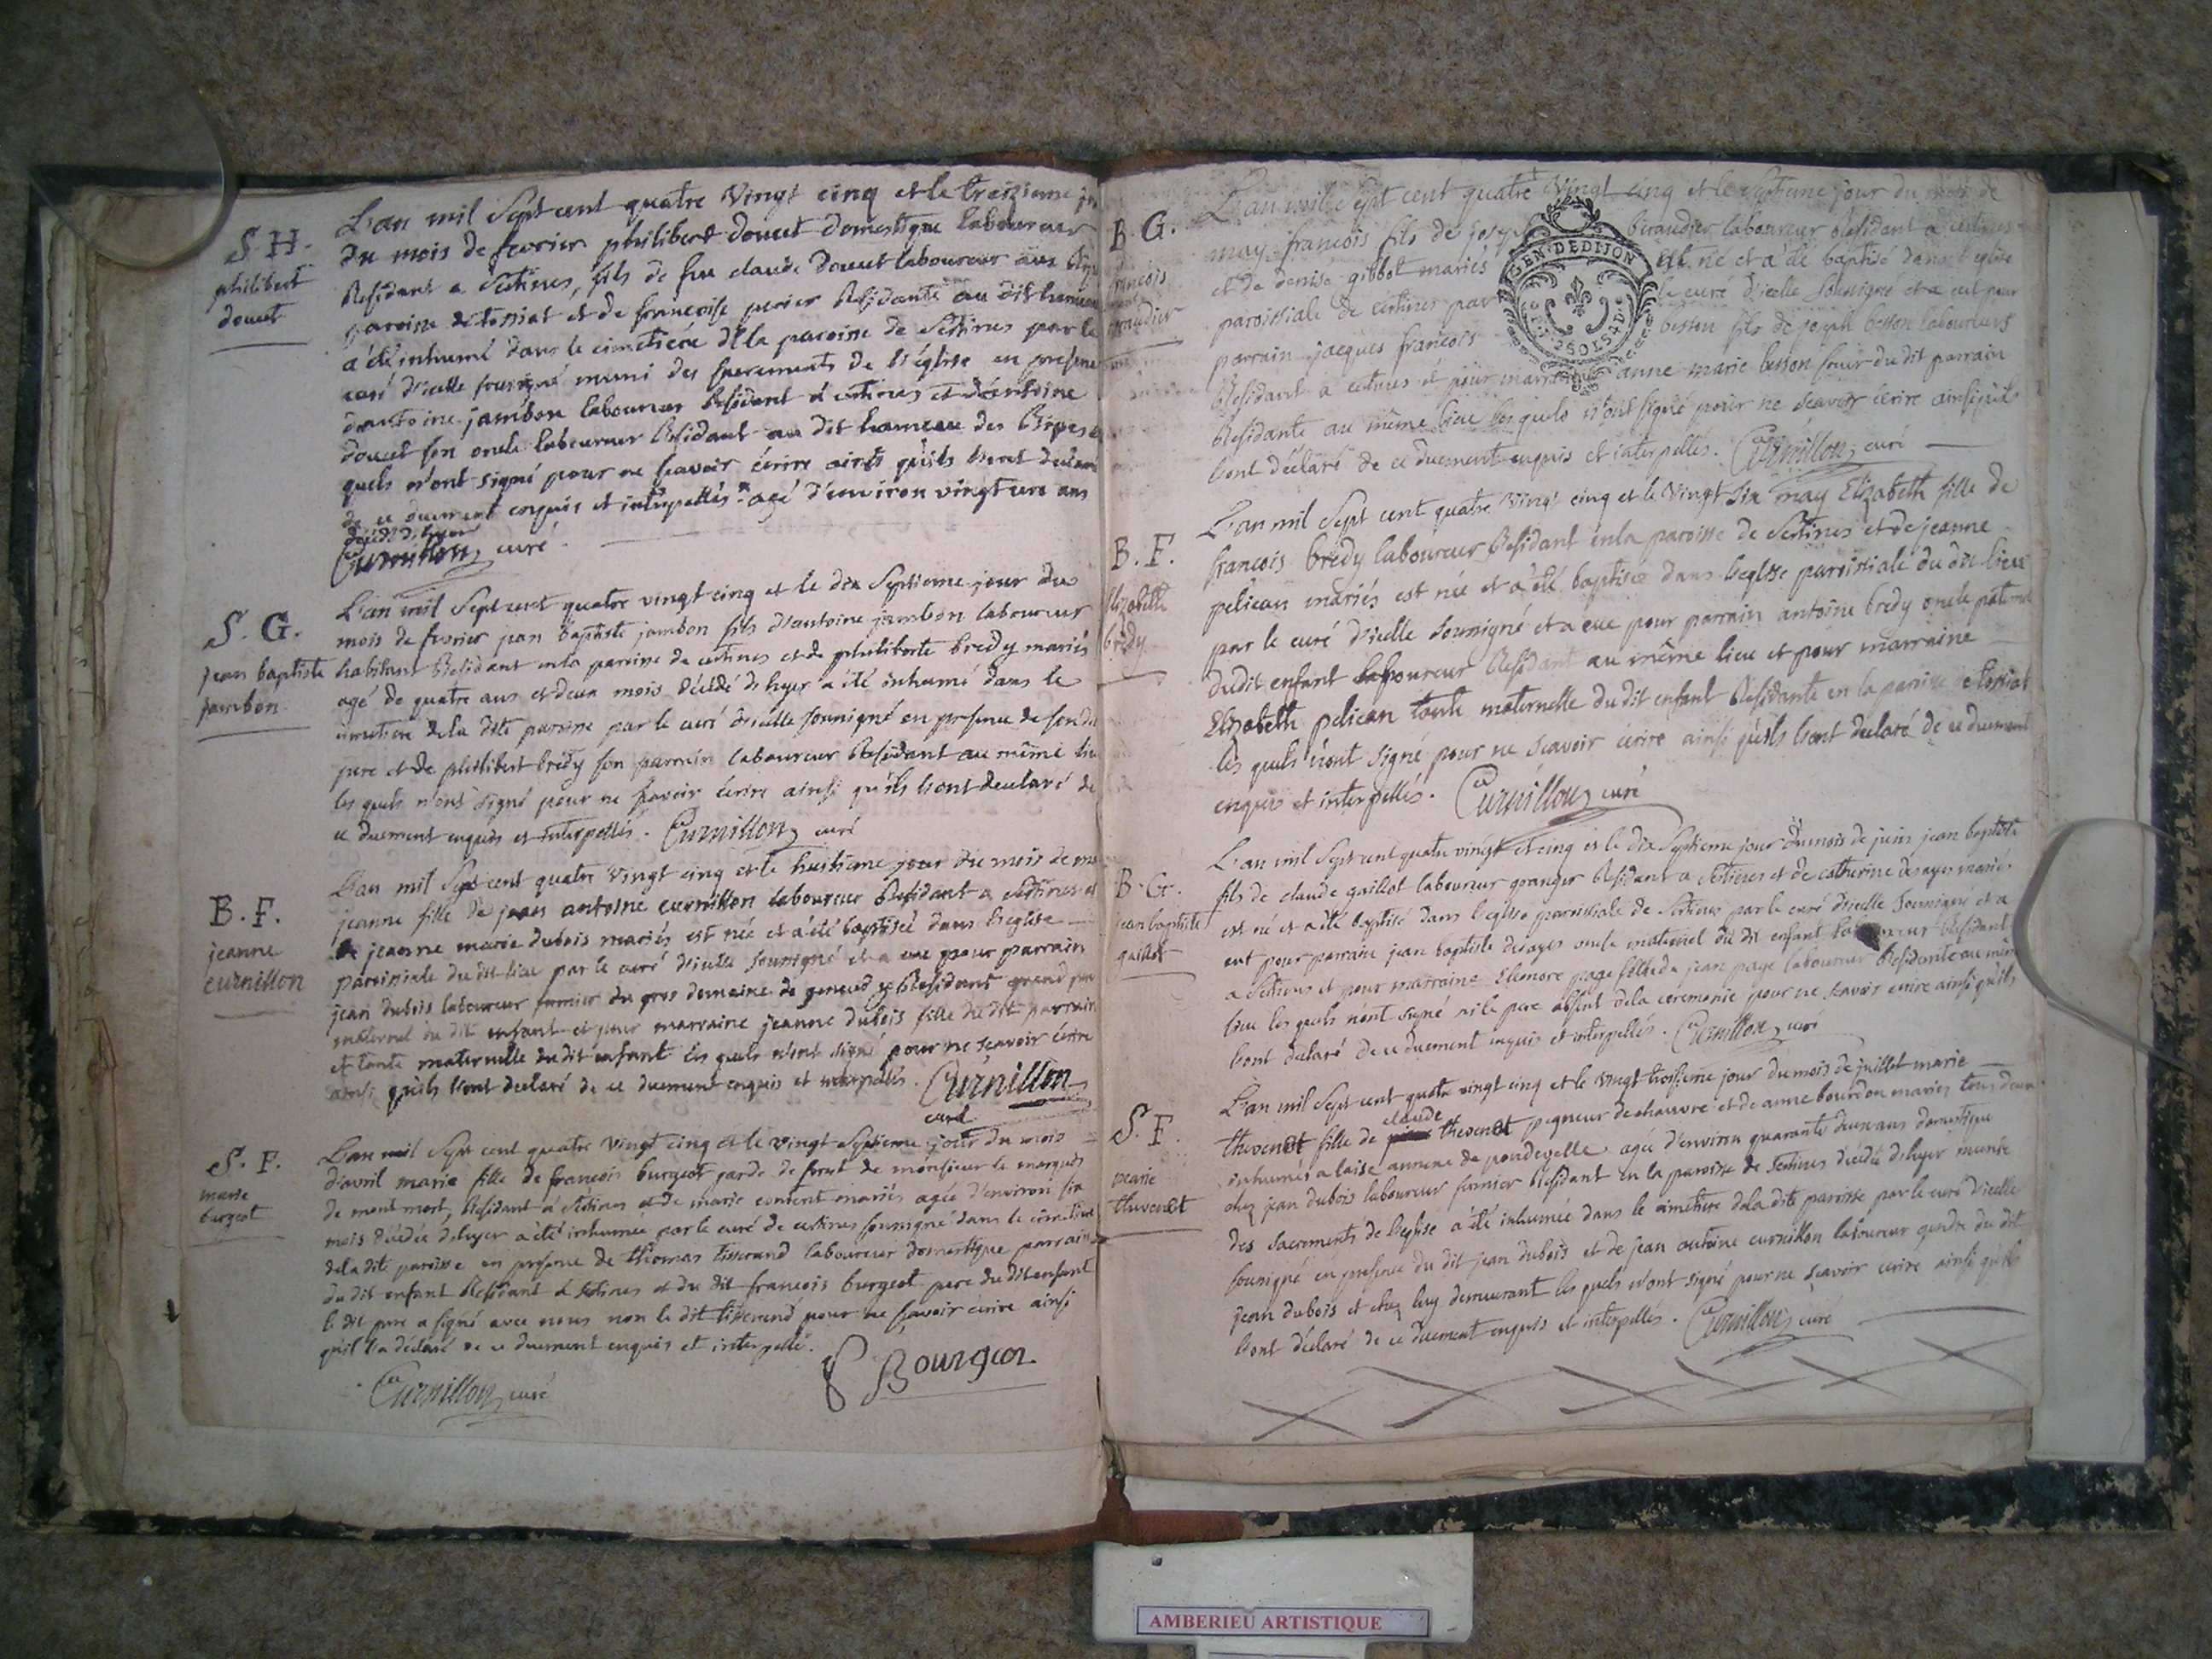 S. H.
philibert
douet
L'an mil Sept cent quatre vingt cinq et le treizieme
du mois de fevrier philibert douet domestique laboureur
Residant a Sertines, fils de feu claude douet laboureur aux
paroisse de tossiat et de francoise perier Residante au dit hameau
a été inhumé dans le cimetiere de la paroisse de Sertines par le
curé d'icelle sousigné muni des sacrements de l'église en presence
d'antoine jambon laboureur Residant a certines et d'antoine
douet son oncle laboureur Residant au dit hameau des
quels n'ont signé pour ne sçavoir écrire ainsi qu'ils l'ont declaré
de ce duement enquis et interpellés agé d'environ vingt un ans
décédé d'hyer
Curnillon, curé
S. G.
jean baptiste
jambon
L'an mil Sept cent quatre vingt cinq et le dix Septieme jour du
mois de fevrier jean baptiste jambon fils d'antoine jambon laboureur
habitant Residant en la paroisse de certines et de philiberte bredy mariés
agé de quatre ans et deux mois décédé d'hyer a été inhumé dans le
cimetiere de la dite paroisse par le curé d'icelle sousigné en presence de son dit
pere et de philibert bredy son parrain laboureur Residant au même lieu
les quels n'ont signé pour ne sçavoir écrire ainsi qu'ils l'ont declaré de
ce duement enquis et interpellés. Curnillon, curé
B. F.
jeanne
curnillon
L'an mil Sept cent quatre vingt cinq et le huitieme jour du mois de
jeanne fille de jean antoine curnillon laboureur Residant a Sertines et
de jeanne marie dubois mariés est née et a été baptisée dans l'eglise
paroissiale du dit lieu par le curé d'icelle sousigné et a eue pour parrain
jean dubois laboureur fermier du gros domaine de genoud y Residant grand pere
maternel du dit enfant et pour marraine jeanne dubois fille du dit parrain
et tante maternelle du dit enfant les quels n'ont signé pour ne scavoir écrire
ainsi qu'ils l'ont declaré de ce duement enquis et interpellés. Curnillon
curé
S. F.
marie
burgeot
L'an mil Sept cent quatre vingt cinq et le vingt Septieme jour du mois
d'avril marie fille de francois burgeot garde de foret de monsieur le marquis
de mont mort, Residant a Sertines et de marie content mariés agée d'environ six
mois décédée d'hyer a été inhumée par le curé de certines sousigné dans le cimetiere
de la dite paroisse en presence de thomas tisserand laboureur domestique parrain
du dit enfant Residant a Sertines et du dit francois burgeot pere du dit enfant
le dit pere a signé avec nous non le dit tisserand pour ne sçavoir écrire ainsi
qu'il l'a déclaré de ce duement enquis et interpellé.
Curnillon, curé
Bourgeot
B. G.
francois
beraudier
L'an mil Sept cent quatre vingt cinq et le septieme jour du mois de
may francois fils de joseph beraudier laboureur Residant a certines
et de denise gibbot mariés est né et a été baptisé dans l'eglise
paroissiale de certines par le curé d'icelle sousigné et a eut pour
parrain jacques francois besson fils de joseph besson laboureurs
Residant a certines et pour marraine anne marie besson soeur du dit parrain
Residante au même lieu les quels n'ont signé pour ne scavoir écrire ainsi qu'ils
l'ont déclaré de ce duement enquis et interpellés. Curnillon, curé
GEN. DE DIJON
2 SOLS 4 D
B. F.
Elizabeth
bredy
L'an mil Sept cent quatre vingt cinq et le vingt six may Elizabeth fille de
francois bredy laboureur Residant en la paroisse de Sertines et de jeanne
pelican mariés est née et a été baptisée dans l'eglise paroissiale du dit lieu
par le curé d'icelle sousigné et a eue pour parrain antoine bredy oncle paternel
du dit enfant laboureur Residant au même lieu et pour marraine
Elizabeth pelican tante maternelle du dit enfant Residante en la paroisse de tossiat
les quels n'ont signé pour ne scavoir écrire ainsi qu'ils l'ont déclaré de ce duement
enquis et interpellés. Curnillon, curé
B. G.
jean baptiste
gaillot
L'an mil Sept cent quatre vingt et cinq et le dix Septieme jour du mois de juin jean baptiste
fils de claude gaillot laboureur granger Residant a Sertines et de catherine desayes mariés
est né et a été baptisé dans l'eglise paroissiale de Sertines par le curé d'icelle sousigné et a
eut pour parrain jean baptiste desayes oncle maternel du dit enfant laboureur Residant
a Sertines et pour marraine Elenore page fille de jean page laboureur Residante au même
lieu les quels n'ont signé ni le pere absent de la ceremonie pour ne scavoir écrire ainsi qu'ils
l'ont declaré de ce duement enquis et interpellés. Curnillon, curé
S. F.
marie
thevenet
L'an mil Sept cent quatre vingt cinq et le vingt troisieme jour du mois de juillet marie
thevenot fille de claude thevenot peigneur de chanvre et de anne bourdon mariés tous deux
inhumés a laise annexe de pondevelle agée d'environ quarante deux ans domestique
chez jean dubois laboureur fermier Residant en la paroisse de Sertines décédée d'hyer munie
des sacrements de l'eglise a été inhumée dans le cimetiere de la dite paroisse par le curé d'icelle
sousigné en presence du dit jean dubois et de jean antoine curnillon laboureur gendre du dit
jean dubois et chez luy demeurant les quels n'ont signé pour ne scavoir écrire ainsi qu'ils
l'ont déclaré de ce duement enquis et interpellés. Curnillon, curé
AMBERIEU ARTISTIQUE